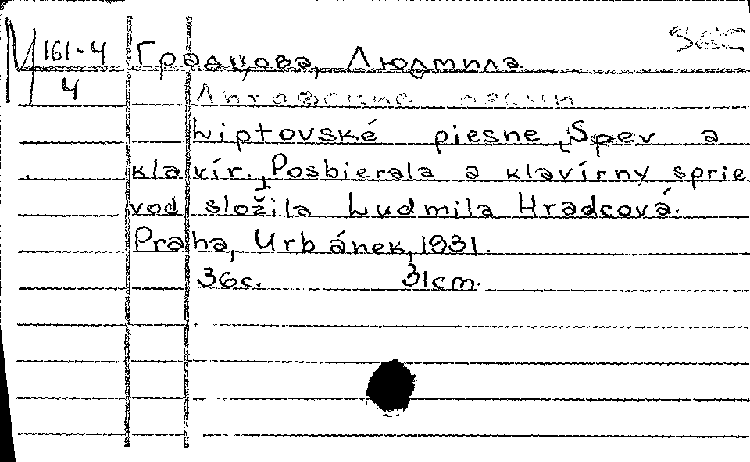 М 161-4
4
Градцова, Людмила
Liptovské piesne [Spev a
klavír.] Posbierala a klavírny sprie
vod složila Ludmila Hradcová.
Praha, Urbánek, 1931.
36c. 31cm.